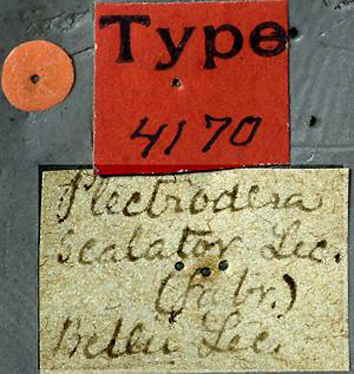 Type
4170
Plectrodera
scalator Lec.
(Fabr.)
Bellii Lec.